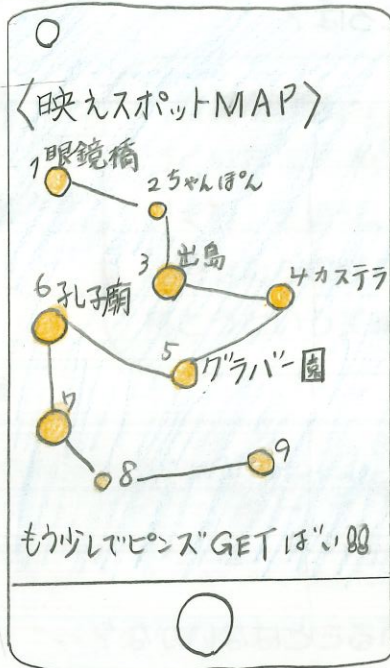 〈映えスポットMAP〉
1眼鏡橋
2ちゃんぽん
3出島
4カステラ
6孔子廟
5グラバー園
7
8
9
もう少しでピンズGETばい!!